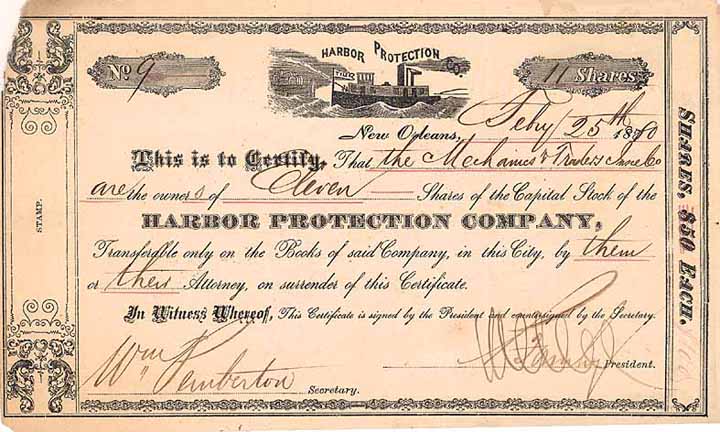 HARBOR PROTECTION CO.
No. 9
11 Shares
New Orleans, Feby 25th 1870
This is to Certify, That the Mechanics & Traders Insce Co
are the owners of Eleven Shares of the Capital Stock of the
HARBOR PROTECTION COMPANY,
Transferable only on the Books of said Company, in this City, by them
or their Attorney, on surrender of this Certificate.
In Witness Whereof, This Certificate is signed by the President and countersigned by the Secretary.
President.
Wm Pemberton
Secretary.
STAMP.
SHARES, $50 EACH.